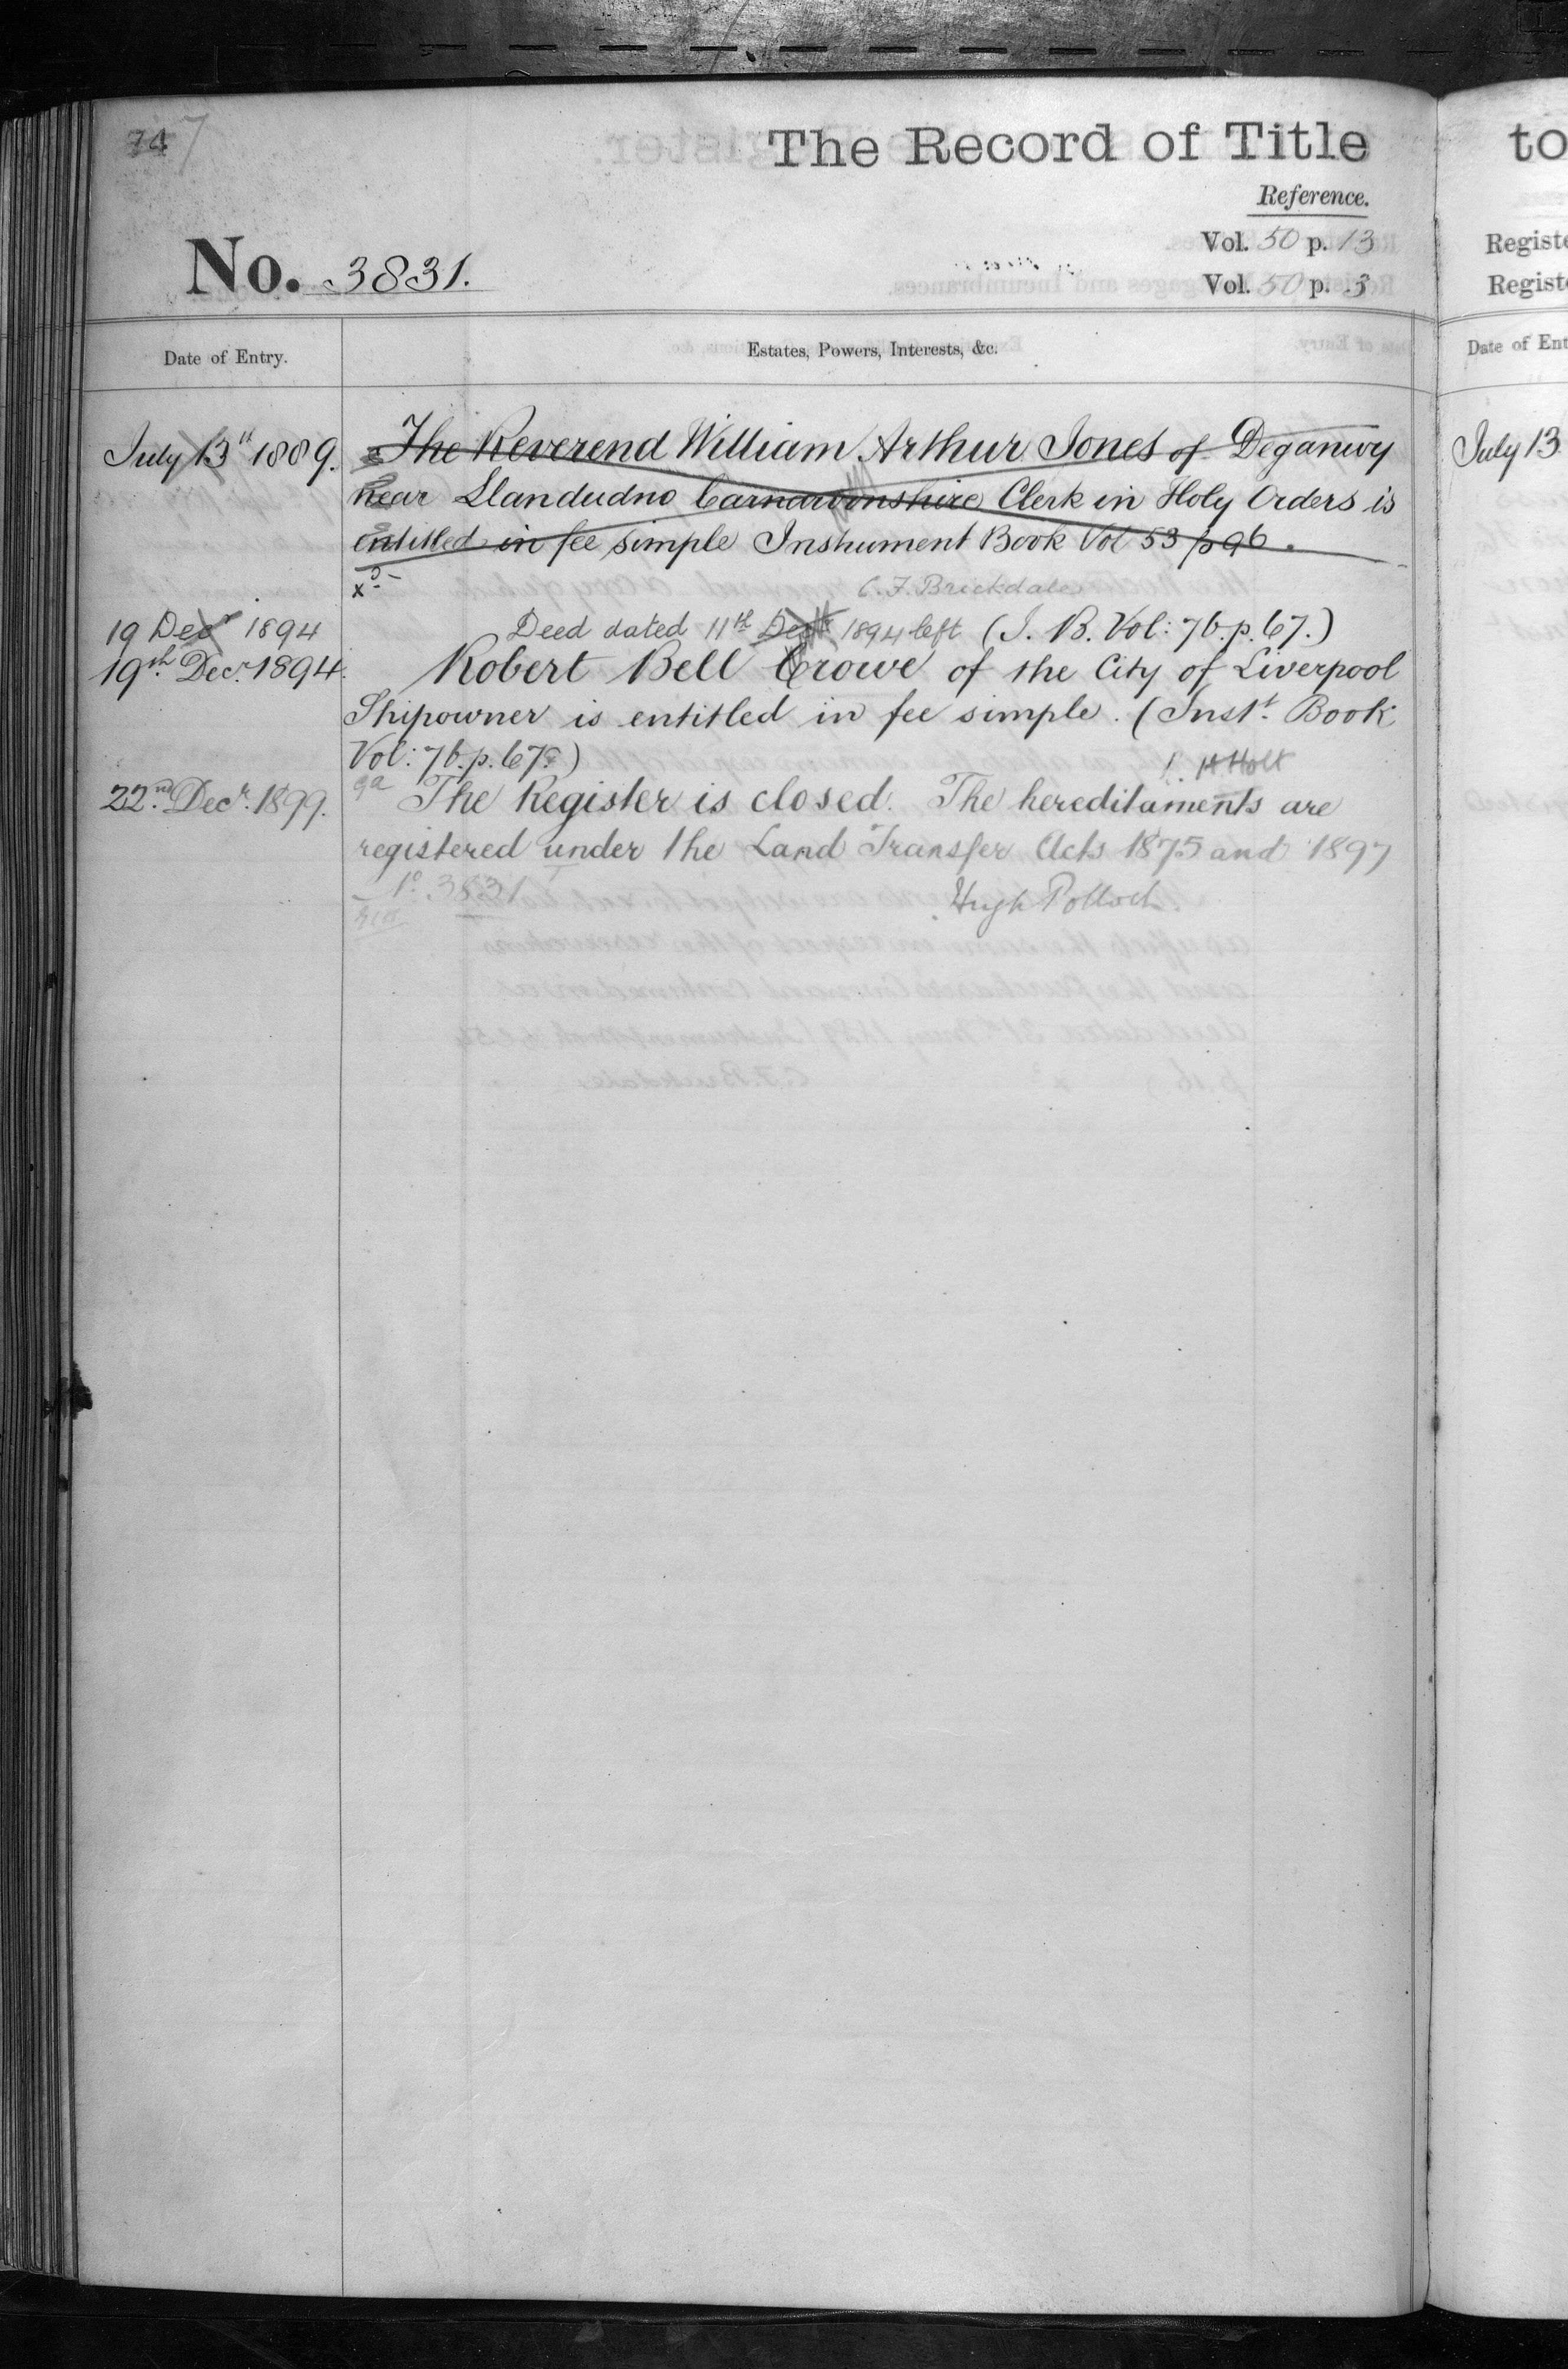 747
The Record of Title
Reference.
Vol. 50 p. 13
No. 3831.
Vol. 50 p. 3
Date of Entry.
Estates, Powers, Interests, &c.
July 13th 1889. The Reverend William Arthur Jones of Deganwy
near Llandudno Carnarvonshire Clerk in Holy Orders is
entitled in fee simple Instrument Book Vol 53 p 96.
C. F. Brickdale
19 Decr 1894 Deed dated 11th Decr 1894 left (I. B. Vol: 76. p. 67.)
19th Decr. 1894. Robert Bell Crowe of the City of Liverpool
Shipowner is entitled in fee simple. (Inst. Book
Vol: 76. p. 67.)
Holt
22nd Decr. 1899. The Register is closed. The hereditaments are
registered under the Land Transfer Acts 1875 and 1897
No. 3831
Hugh Pollock.
to
Registe
Registe
Date of Ent
July 13